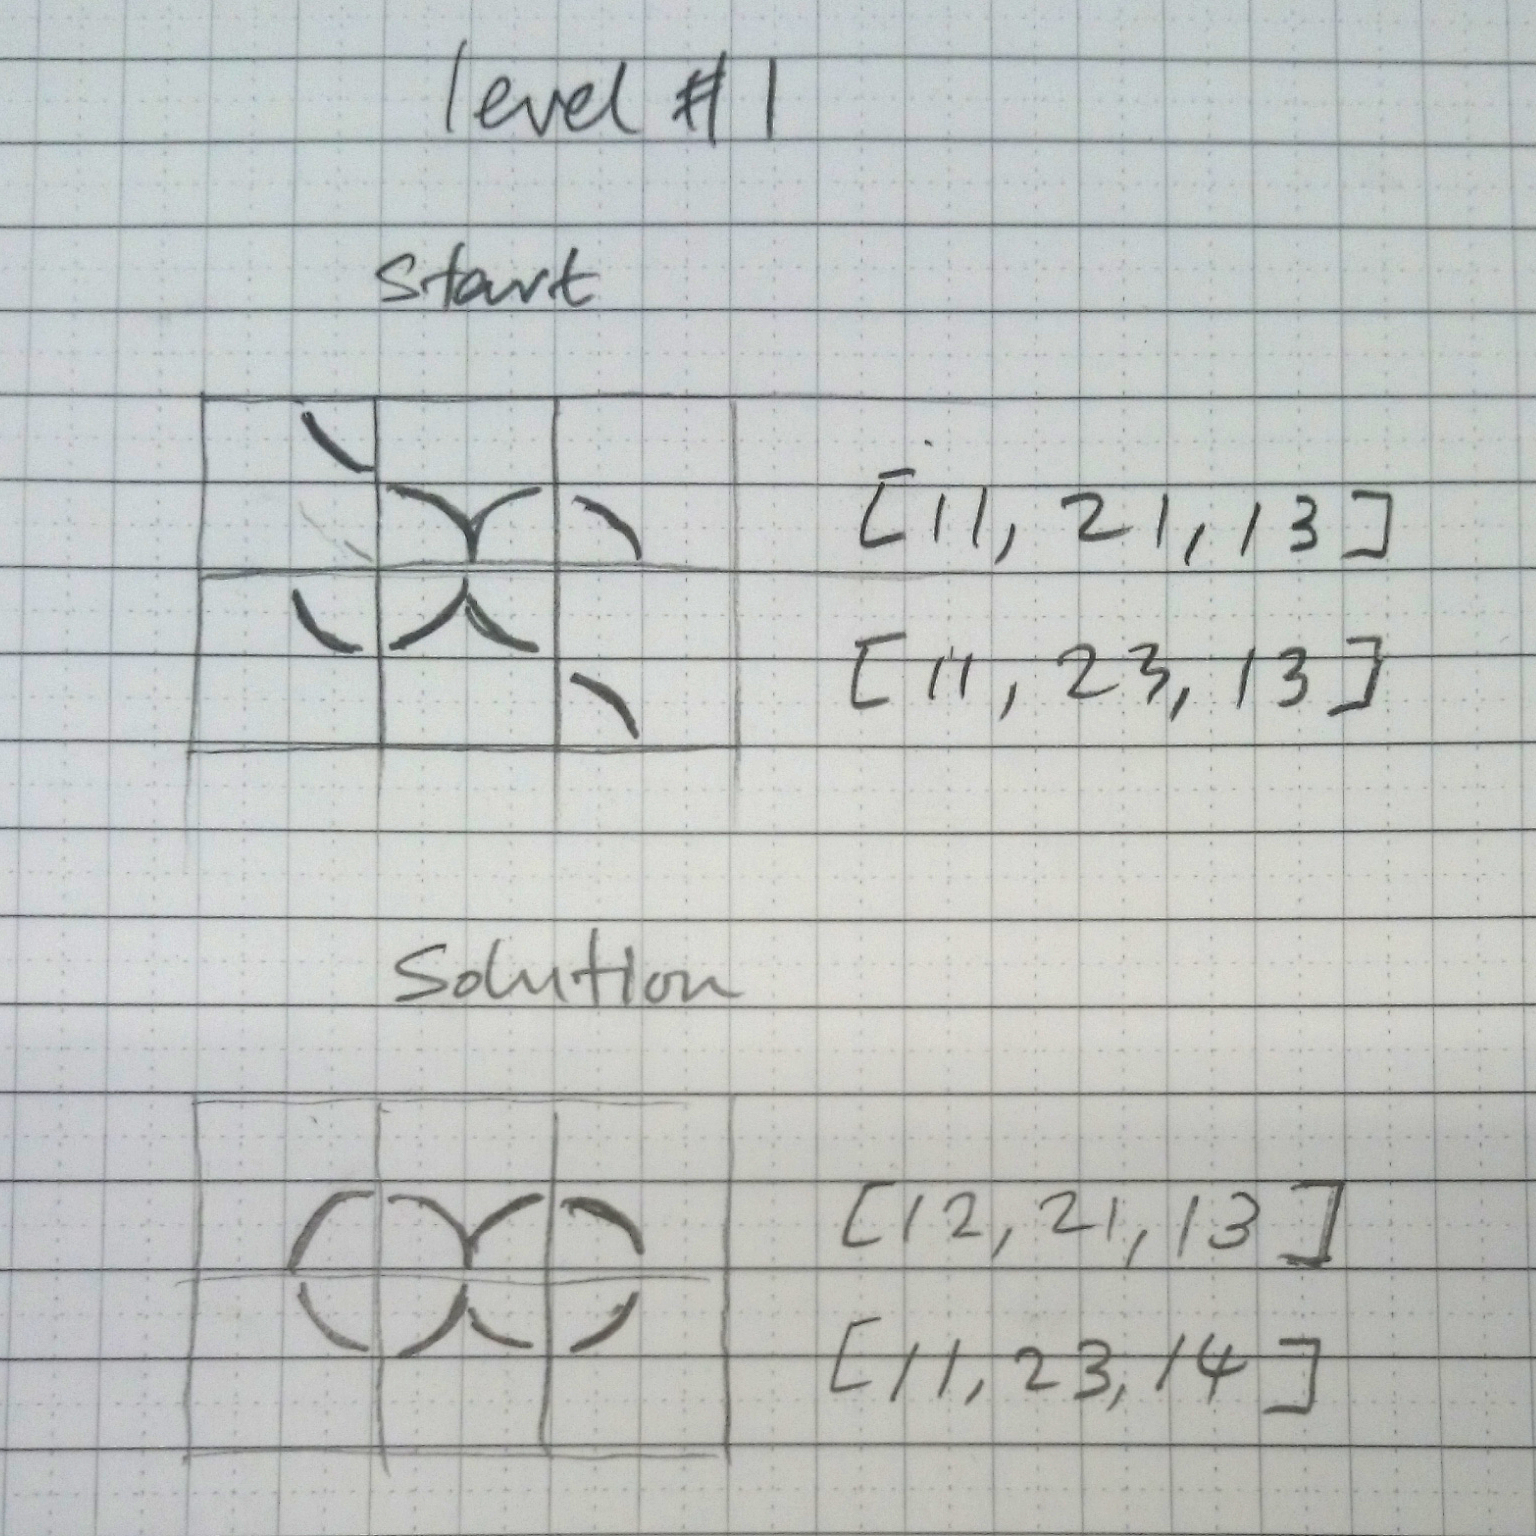 level #1
Start
[11, 21, 13]
[11, 23, 13]
Solution
[12, 21, 13]
[11, 23, 14]